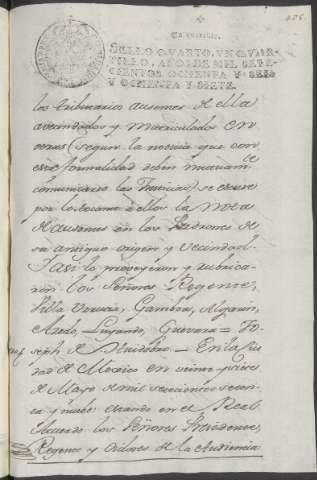 Un quartillo.
SELLO QUARTO, UN QUAR-
TILLO, AÑOS DE MIL SETE-
CIENTOS OCHENTA Y SEIS
Y OCHENTA Y SIETE.
los tributarios ausentes de ella
avecindados y matriculados en
otras (segun la noticia que con
esta formalidad deben mutuam.te
comunicarse las Justicias) se escuse
por lo tocante a ellos la nota
de ausentes en los Padrones de
su antiguo origen y vecindad.
Y asi lo proveyeron y rubrica-
ron los Señores Regente,
Villa Urrutia, Gamboa, Algarin,
Azedo, Luyando, Guevara = Jo-
seph de = En la Ciu-
dad de Mexico en veinte y
de Mayo de mil setecientos seten-
ta y nuebe: estando en el Real
Acuerdo los Señores Presidente,
Regente y Oidores de la Audiencia